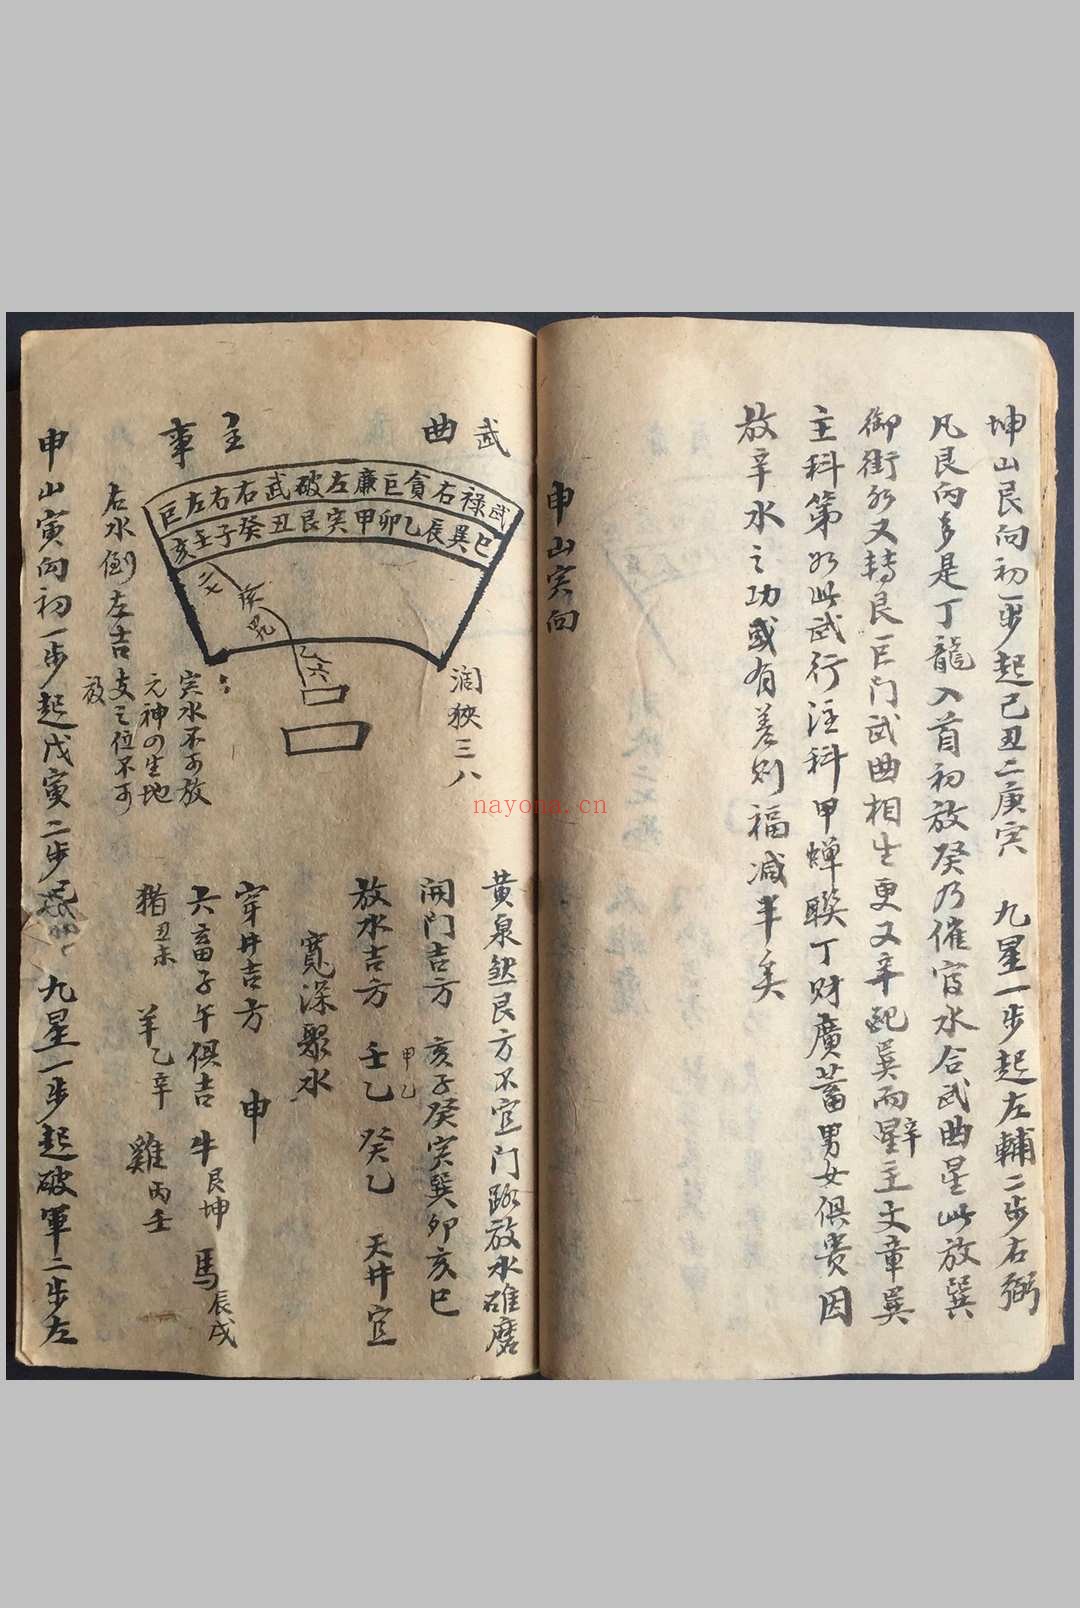 坤山艮向初一步起己丑二庚寅 九星一步起左輔二步右弼
凡艮向多是丁龍入首初放癸乃催官水合武曲星此放巽
御街水又轉艮巨门武曲相生更又辛配巽而辛星主文章巽
主科第水此武行注科甲蟬聯丁财廣蓄男女俱贵因
放辛水之功或有差则福减半矣
申山寅向
武曲
主事
武禄右貪巨廉左破武右右左巨
巳巽辰乙卯甲寅艮丑癸子壬亥
乙六
濶狹三八
黄泉煞艮方不宜门路放水碓磨
開门吉方 亥子癸寅巽卯亥巳
放水吉方 壬乙 甲乙 癸乙 天井宜
寬深聚水
穿井吉方 申
六畜子午俱吉 牛艮坤 馬辰戌
猪丑未 羊乙辛 雞丙壬
寅水不可放
元神の生地
支之位不可
放
右水倒左吉
申山寅向初一步起戊寅二步 九星一步起破軍二步左
nayona.cn